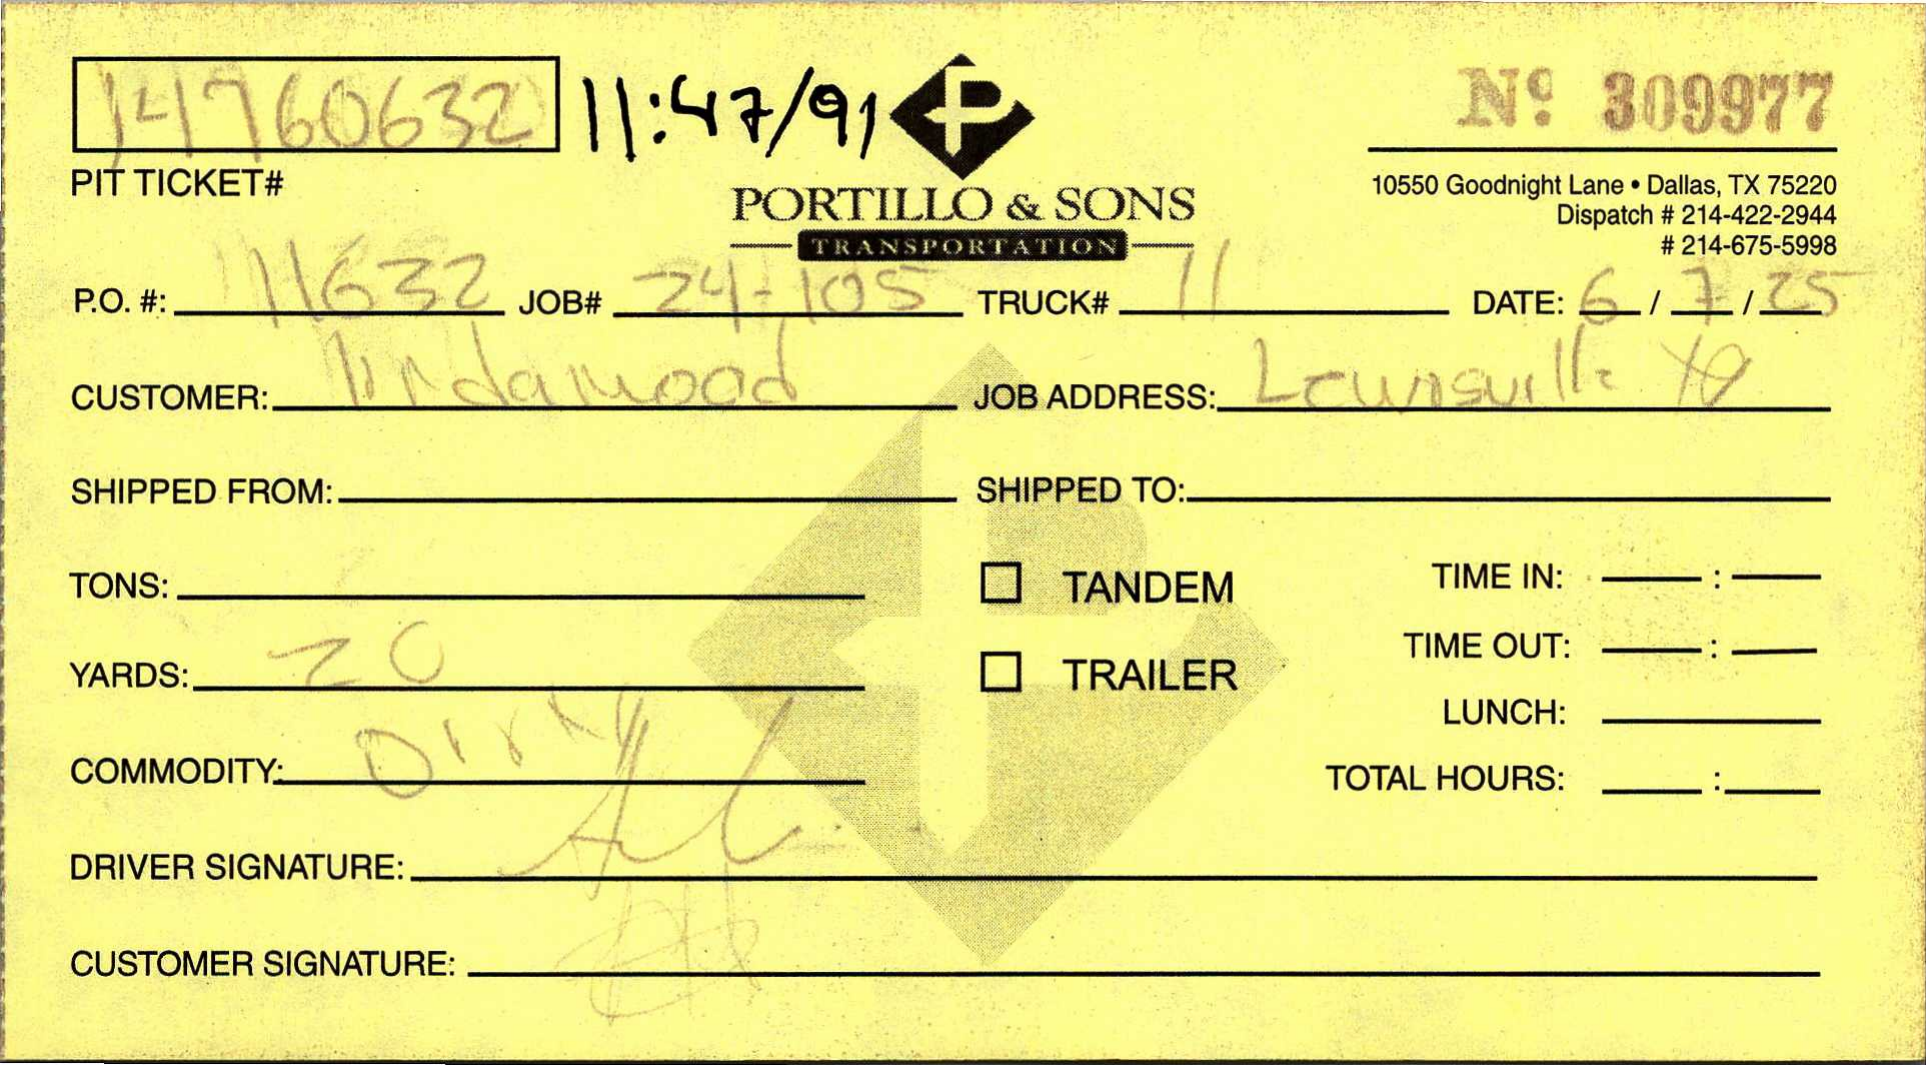 14760632 11:47/91 Nº 309977
PIT TICKET#
PORTILLO & SONS
TRANSPORTATION
10550 Goodnight Lane • Dallas, TX 75220
Dispatch # 214-422-2944
# 214-675-5998
P.O. #: 11632 JOB# 24-105 TRUCK# 11 DATE: 6 / 7 / 25
CUSTOMER: JOB ADDRESS: Lewisville
SHIPPED FROM: SHIPPED TO:
TONS: TANDEM TIME IN: :
YARDS: 20 TRAILER TIME OUT: :
LUNCH:
COMMODITY: TOTAL HOURS: :
DRIVER SIGNATURE:
CUSTOMER SIGNATURE: